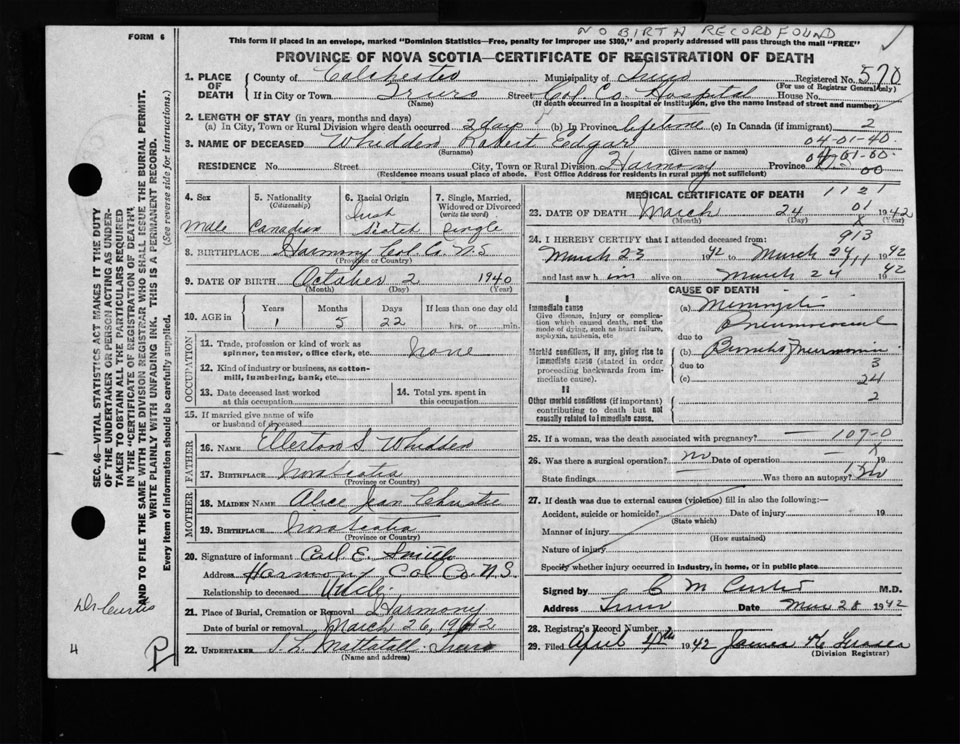 NO BIRTH RECORD FOUND
FORM 6
This form if placed in an envelope, marked "Dominion Statistics—Free, penalty for improper use $300," and properly addressed will pass through the mail "FREE"
PROVINCE OF NOVA SCOTIA—CERTIFICATE OF REGISTRATION OF DEATH
1. PLACE OF DEATH County of Colchester Municipality of Truro Registered No. 570
(For use of Registrar General only)
If in City or Town Truro Street Col. Co. Hospital House No.
(Name) (If death occurred in a hospital or institution, give the name instead of street and number)
2. LENGTH OF STAY (in years, months and days)
(a) In City, Town or Rural Division where death occurred 2 days (b) In Province lifetime (c) In Canada (if immigrant) 2
3. NAME OF DECEASED Whidden Robert Edgar 04-01-40
(Surname) (Given name or names) 04-01-00
RESIDENCE No. Street City, Town or Rural Division Harmony Province N.S.
(Residence means usual place of abode. Post Office Address for residents in rural parts not sufficient) 00
4. Sex
Male
5. Nationality
(Citizenship)
Canadian
6. Racial Origin
Irish
Scotch
7. Single, Married, Widowed or Divorced
(write the word)
Single
8. BIRTHPLACE Harmony Col. Co. N.S
(Province or Country)
9. DATE OF BIRTH October 2 1940
(Month) (Day) (Year)
10. AGE in Years Months Days If less than one day old
1 5 22 hrs. or min.
OCCUPATION
11. Trade, profession or kind of work as spinner, teamster, office clerk, etc. none
12. Kind of industry or business, as cotton-mill, lumbering, bank, etc.
13. Date deceased last worked at this occupation
14. Total yrs. spent in this occupation
15. If married give name of wife or husband of deceased
FATHER
16. NAME Ellerton S Whidden
17. BIRTHPLACE Nova Scotia
(Province or Country)
MOTHER
18. MAIDEN NAME Alice Jean Christie
19. BIRTHPLACE Nova Scotia
(Province or Country)
20. Signature of informant Carl E. Smith
Address Harmony Col Co. N.S.
Relationship to deceased Uncle
21. Place of Burial, Cremation or Removal Harmony
Date of burial or removal March 26, 1942
22. UNDERTAKER Truro
(Name and address)
MEDICAL CERTIFICATE OF DEATH 1121
23. DATE OF DEATH March 24 01 1942
(Month) (Day) X (Year)
24. I HEREBY CERTIFY that I attended deceased from: 913
March 23 1942 to March 24 1942
and last saw him alive on March 24 1942
CAUSE OF DEATH
I
Immediate cause
Give disease, injury or complication which caused death, not the mode of dying, such as heart failure, asphyxia, asthenia, etc
(a) Meningitis
Pneumococcal
due to
Morbid conditions, if any, giving rise to immediate cause (stated in order proceeding backwards from immediate cause).
(b) Broncho Pneumonia
due to 3
(c) 24
II
Other morbid conditions (if important) contributing to death but not causally related to immediate cause.
2
25. If a woman, was the death associated with pregnancy? — 107-0
26. Was there a surgical operation? no Date of operation — X
State findings — Was there an autopsy? no
27. If death was due to external causes (violence) fill in also the following:—
Accident, suicide or homicide? Date of injury 19
(State which)
Manner of injury
(How sustained)
Nature of injury
Specify whether injury occurred in industry, in home, or in public place
Signed by C M Curtis M.D.
Address Truro Date Mar 28 1942
28. Registrar's Record Number
29. Filed April 4th 1942 James
(Division Registrar)
SEC. 46—VITAL STATISTICS ACT MAKES IT THE DUTY
OF THE UNDERTAKER OR PERSON ACTING AS UNDERTAKER TO OBTAIN ALL THE PARTICULARS REQUIRED
IN THE "CERTIFICATE OF REGISTRATION OF DEATH"
AND TO FILE THE SAME WITH THE DIVISION REGISTRAR WHO SHALL ISSUE THE BURIAL PERMIT.
WRITE PLAINLY WITH UNFADING INK. THIS IS A PERMANENT RECORD.
Every item of information should be carefully supplied. (See reverse side for instructions.)
Dr Curtis
4
P